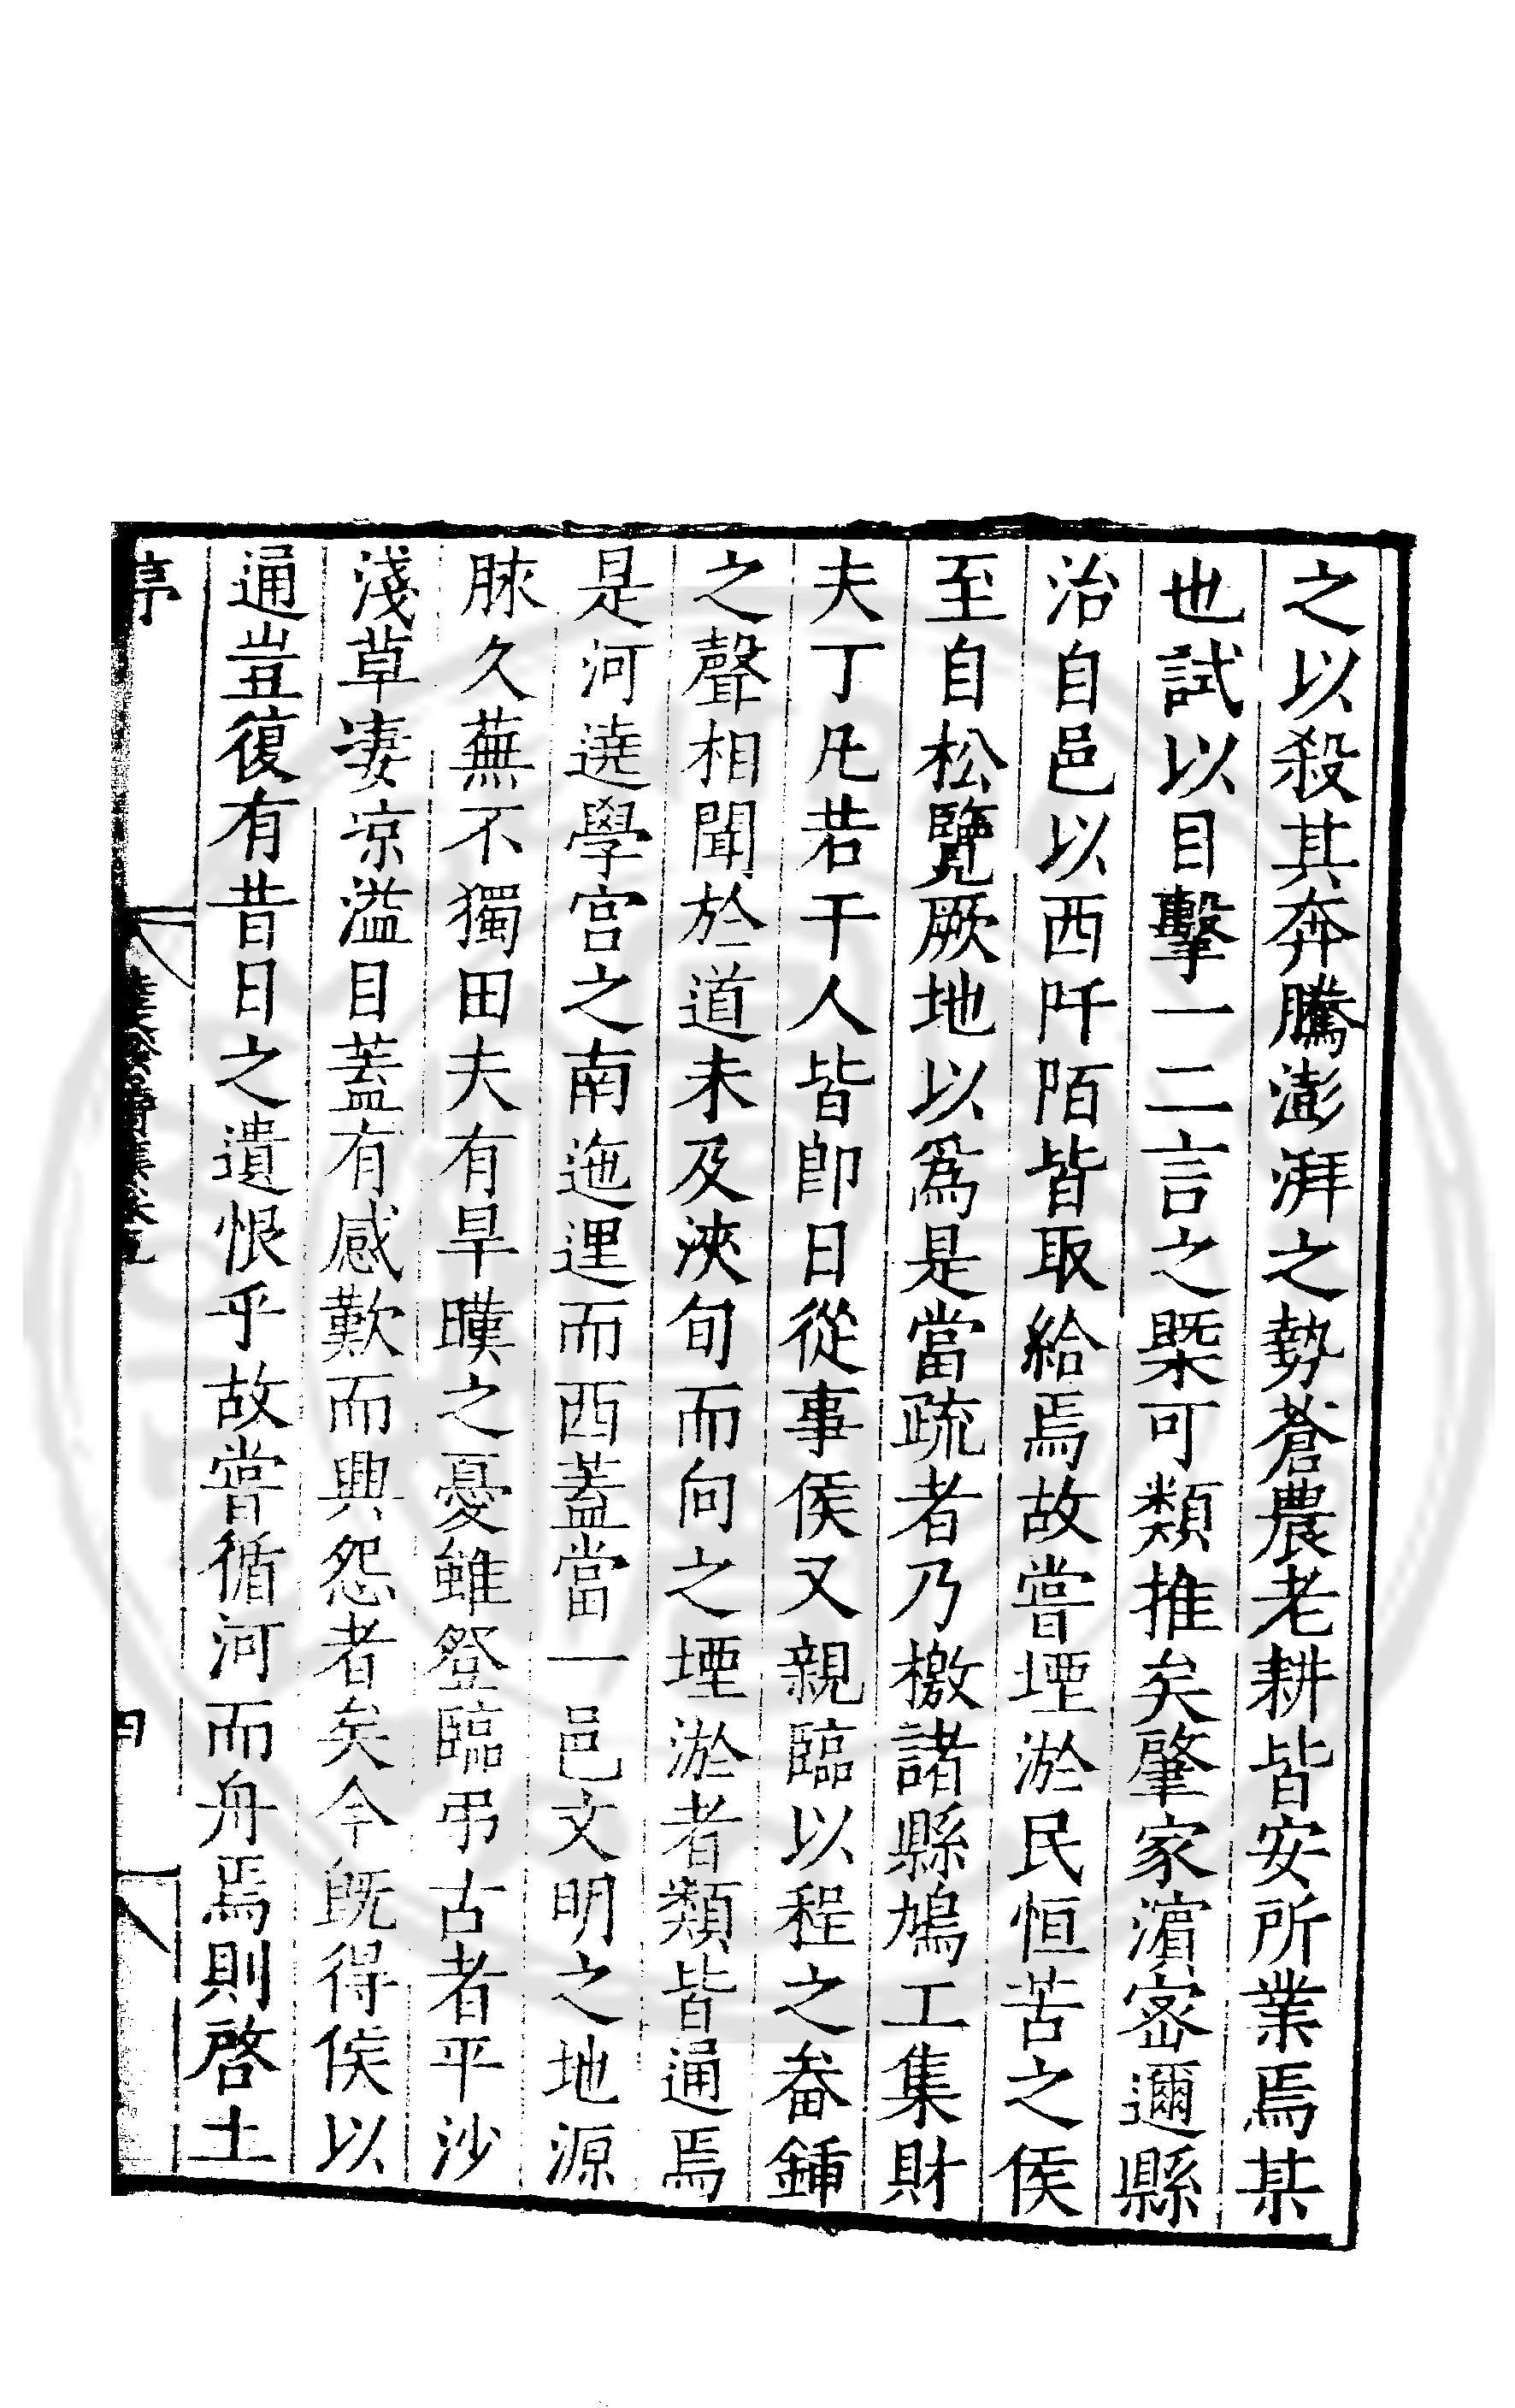 之以殺其奔騰澎湃之勢蒼農老耕皆安所業焉某
也試以目擊一二言之槩可類推矣肇家濵宻邇縣
治自邑以西阡陌皆取給焉故嘗堙淤民恒苦之侯
至自松覽厥地以爲是當疏者乃檄諸縣鳩工集財
夫丁凡若干人皆卽日從事侯又親臨以程之畚鍤
之聲相聞於道未及浹旬而向之堙淤者類皆通焉
是河遶學宫之南迤逦而西蓋當一邑文明之地源
脉久蕪不獨田夫有旱暵之憂雖登臨弔古者平沙
淺草凄凉溢目蓋有感歎而興怨者矣今旣得侯以
通豈復有昔日之遺恨乎故嘗循河而舟焉則啓土
序